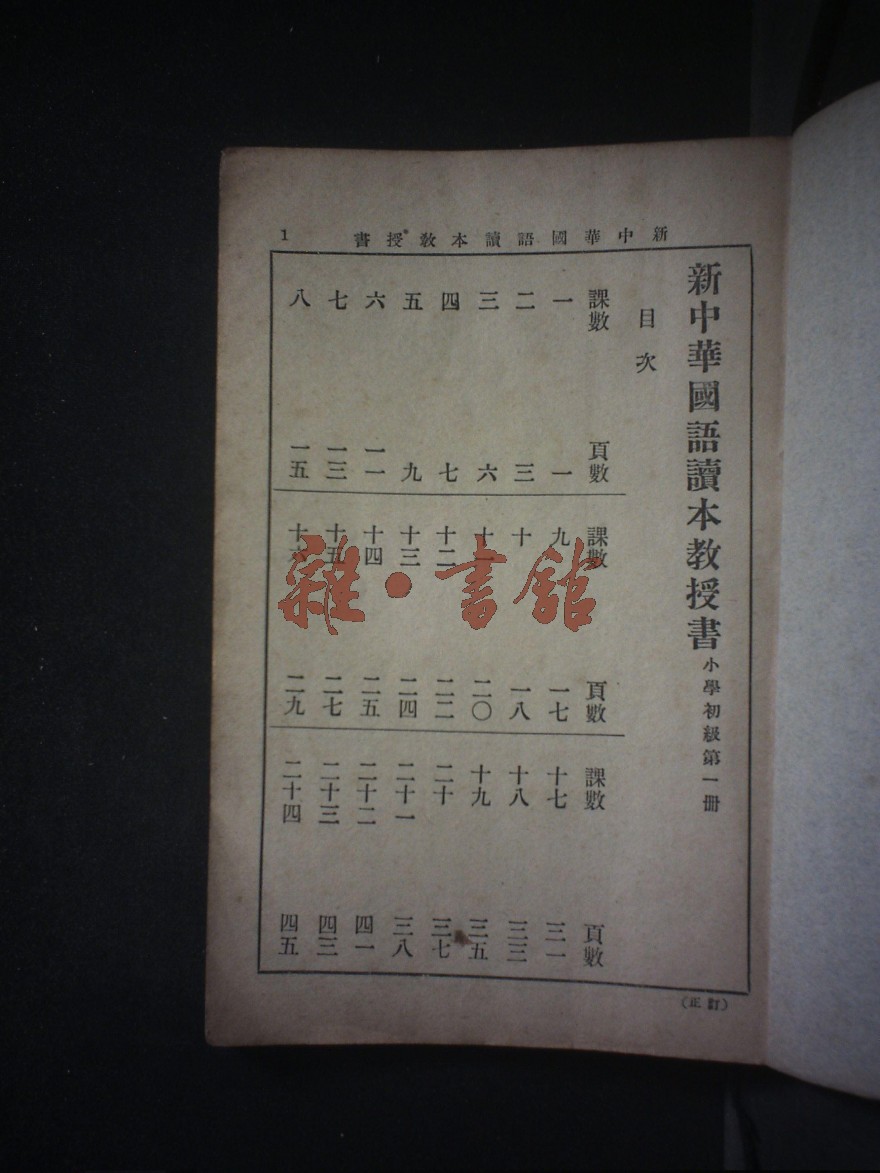 新中華國語讀本教授書 1
新中華國語讀本教授書 小學初級第一冊
目次
課數 頁數 課數 頁數 課數 頁數
一 一 九 一七 十七 三一
二 三 十 一八 十八 三三
三 六 十一 二〇 十九 三五
四 七 十二 二二 二十 三七
五 九 十三 二四 二十一 三八
六 一一 十四 二五 二十二 四一
七 一三 十五 二七 二十三 四三
八 一五 十六 二九 二十四 四五
(訂正)
雜·書館